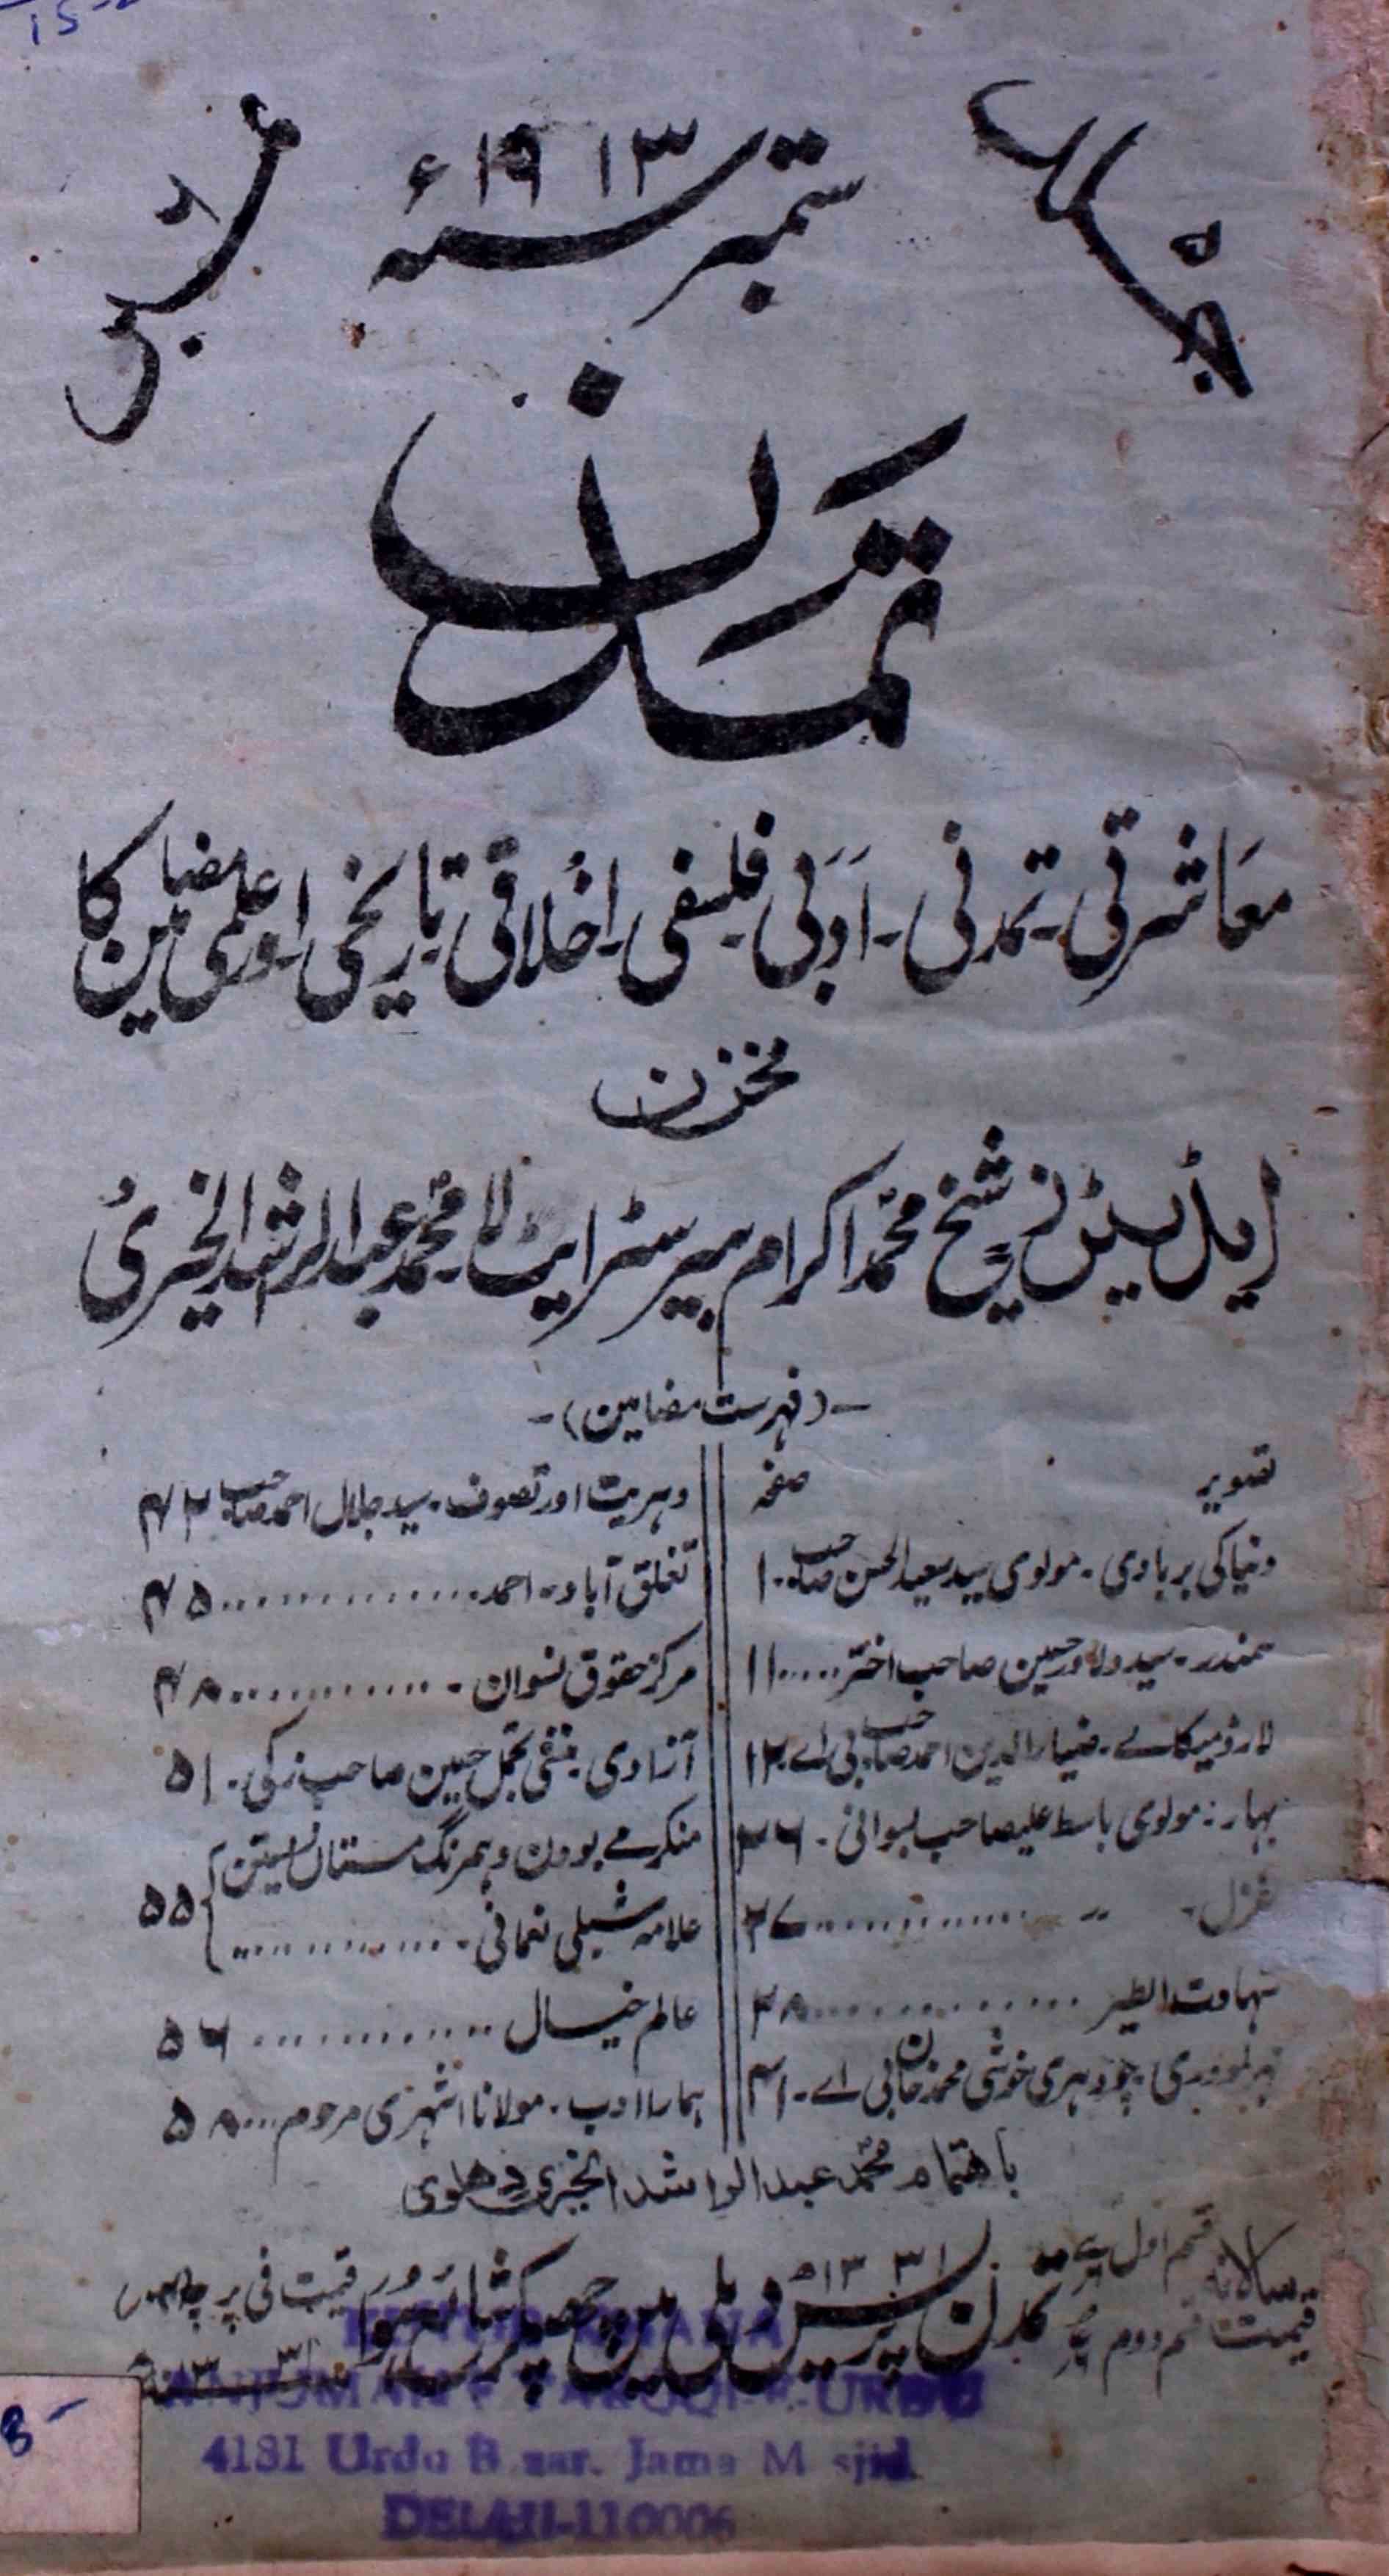 جلد
ستمبر سنہ ۱۹۱۳ء
نمبر
تمدن
معاشرتی ۔ تمدنی ۔ ادبی فلسفی ۔ اخلاقی تاریخی اور علمی مضامین کا
مخزن
ایڈیٹرز شیخ محمد اکرام بیرسٹر ایٹ لا محمد عبدالراشد الخیری
-(فہرست مضامین)-
تصویر صفحہ
دنیا کی بربادی ۔ مولوی سید سعید الحسن صاحب ۱۰
سمندر ۔ سید دلاور حسین صاحب اختر ..... ۱۱
لارڈ میکالے ۔ ضیاء الدین احمد صاحب بی اے ۱۲
بہار ۔ مولوی باسط علیصاحب بسوانی ۔ ۳۶
غزل ۔ ............. ۳۷
.............. ۳۸
چودہری خوشی محمد خان بی اے ۔ ۴۱
دہریت اور تصوف ۔ سید جلال احمد صاحب ۴۲
تغلق آباد ۔ احمد .............. ۴۵
مرکز حقوق نسواں ۔ ............ ۴۸
آزادی ۔ منشی تجمل حسین صاحب زکی ۔ ۵۱
منکر مے بودن و ہمرنگ مستان زیستن
علامہ شبلی نعمانی ۔ ............ ۵۵
عالم خیال ............ ۵۶
ہمارا ادب ۔ مولانا اشہری مرحوم ... ۵۸
باہتمام محمد عبدالراشد الخیری دہلوی
سالانہ قیمت قسم اول
قسم دوم
تمدن پریس دہلی مین چھپکر شائع ہوا
۱۳۳۱ھ
قیمت فی پرچہ
ANJUMAN-E-TARAQQI-E-URDU
4181 Urdu B zar. Jama M sjid
DELHI-110006